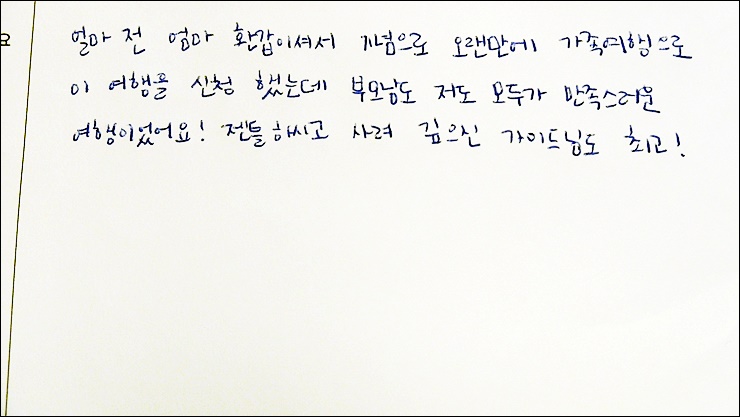 얼마 전 엄마 환갑이셔서 기념으로 오랜만에 가족여행으로
이 여행을 신청 했는데 부모님도 저도 모두가 만족스러운
여행이었어요! 젠틀하시고 사려 깊으신 가이드님도 최고!